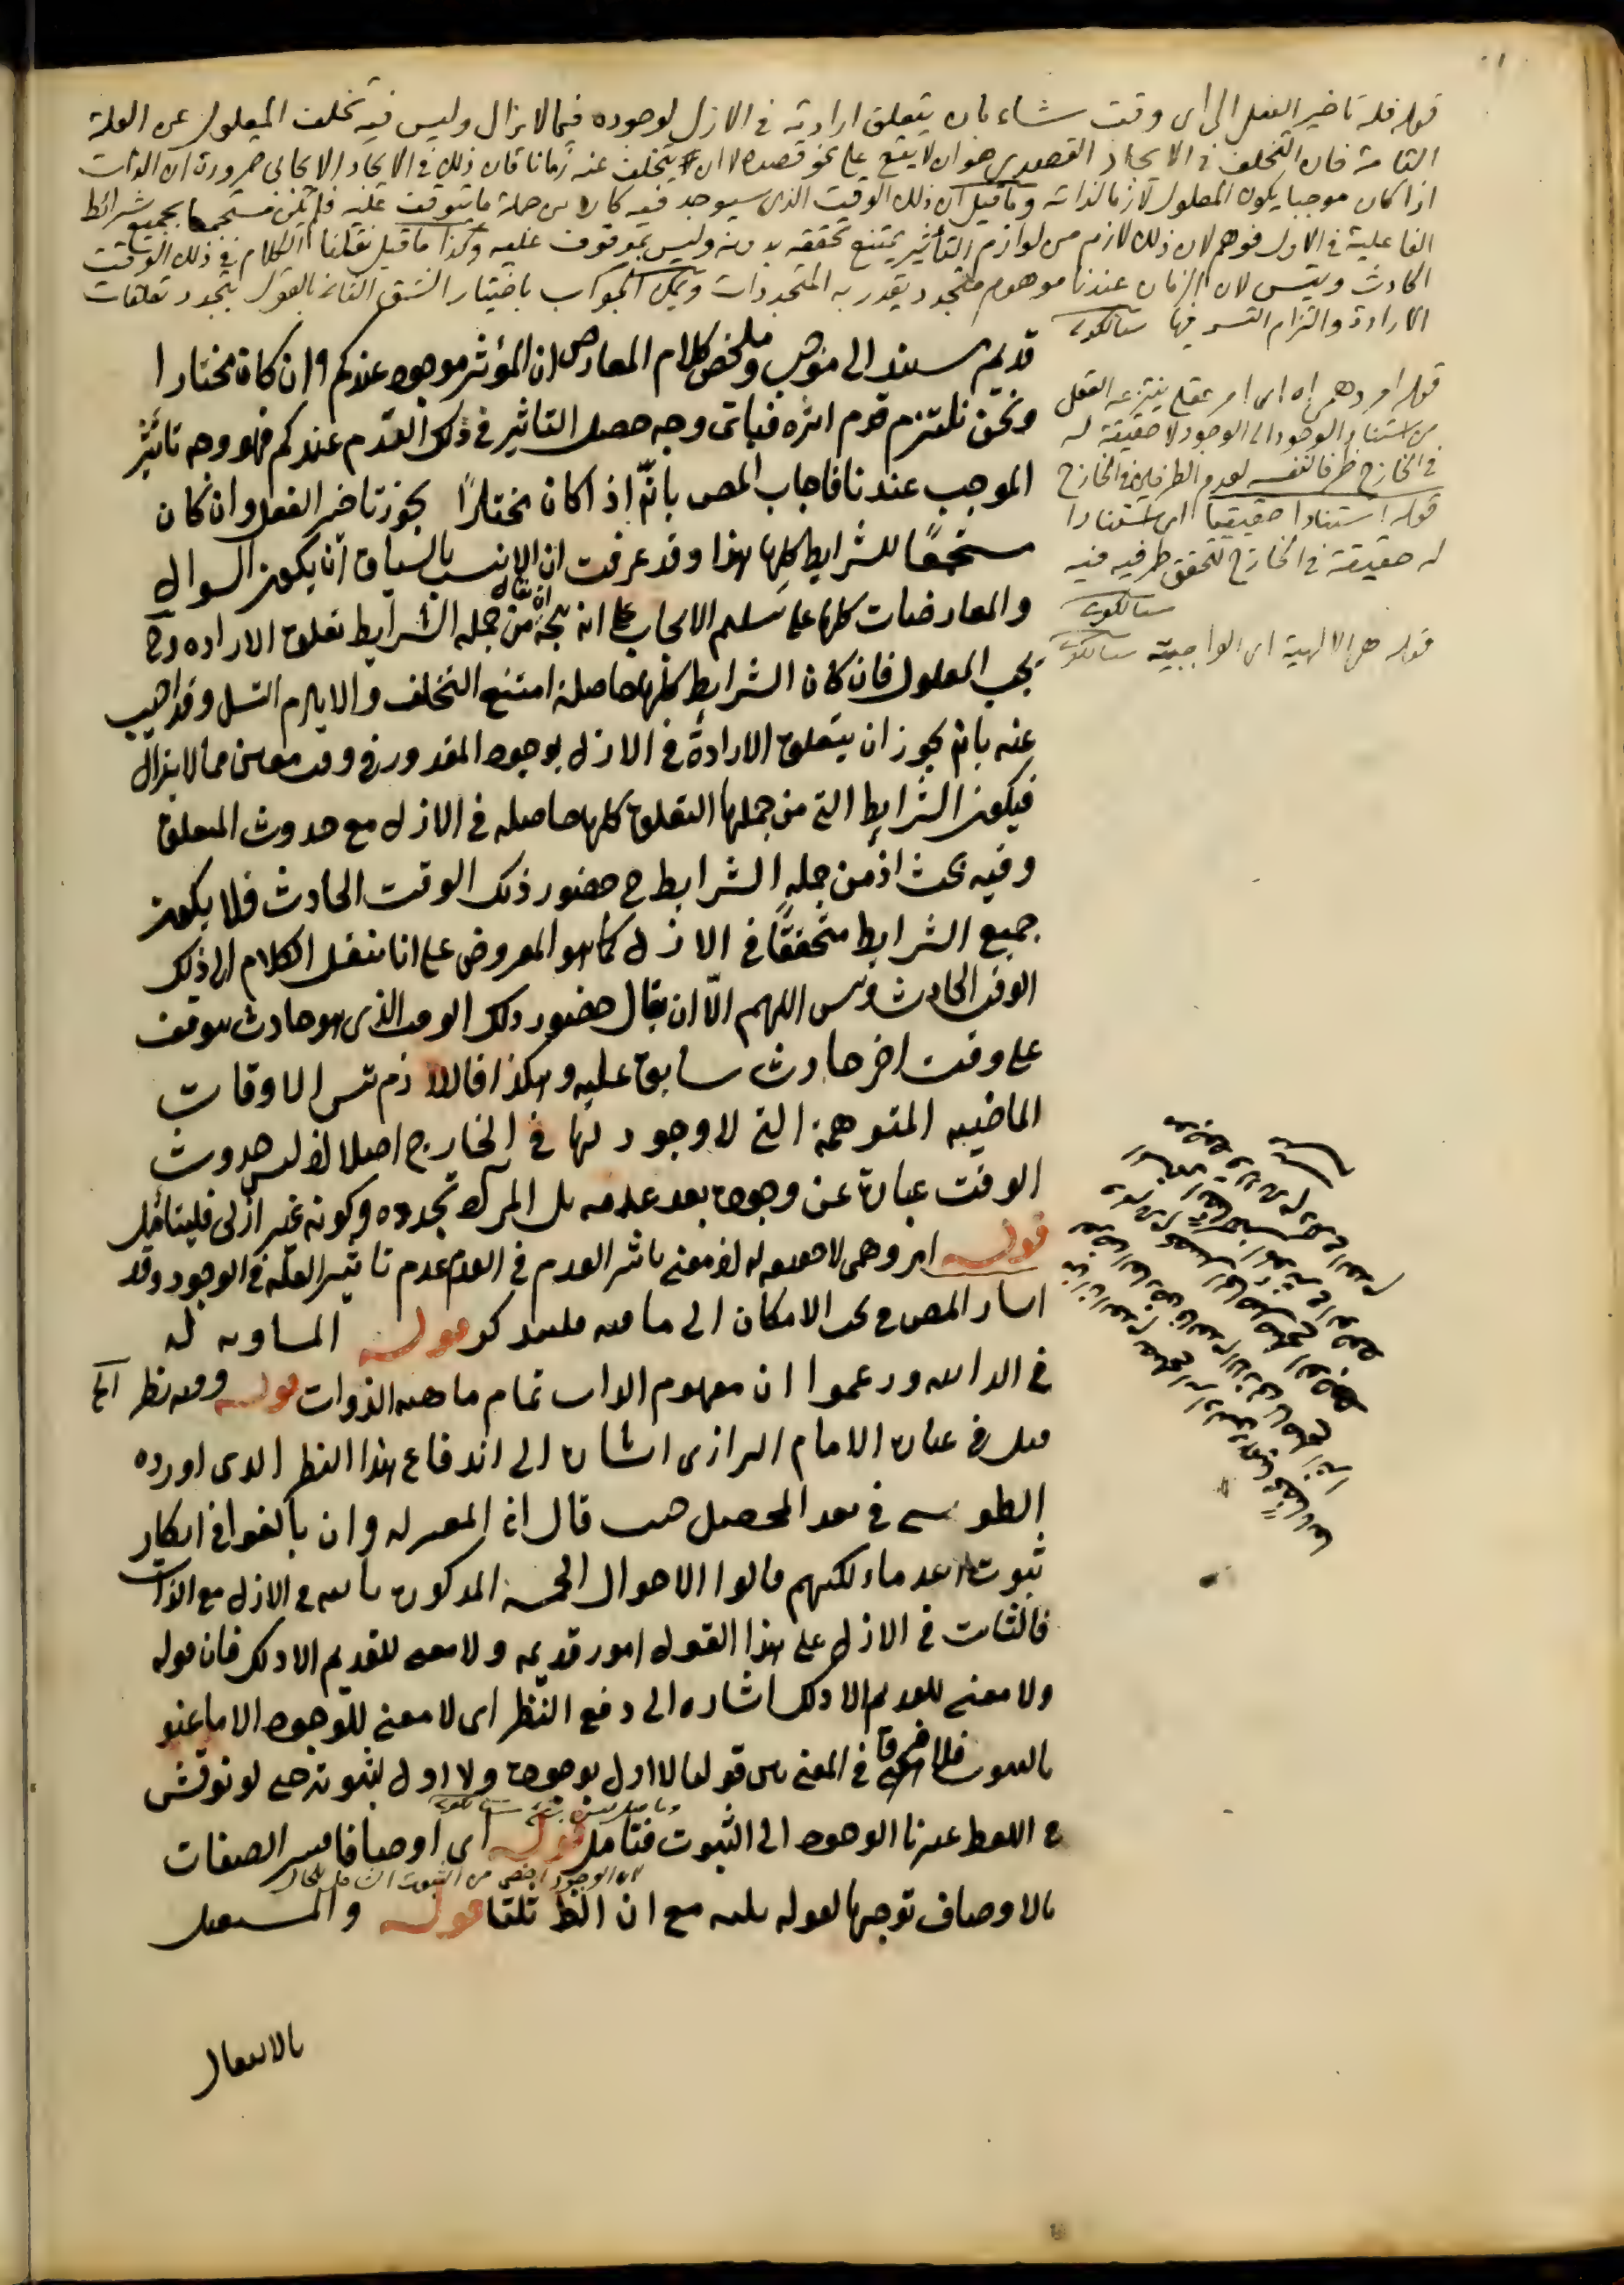 قوله فله تاخير الفعل الى اى وقت شاء بان يتعلق ارادته فى الازل لوجوده فيما لا يزال وليس فيه تخلف المعلول عن العلة
التامة فان التخلف فى الايجاد القصدى هو ان لا يقع على نحو قصده لا ان يتخلف عنه زمانا فان ذلك فى الايجاد الايجابى ضرورة ان الذات
اذا كان موجبا يكون المعلول لازما لذاته وما قيل ان ذلك الوقت الذى سيوجد فيه كان من جملة ما يتوقف عليه فلم يكن مستجمعا بجميع شرائط
الفاعلية فى الازل فوهم لان ذلك لازم من لوازم التأثير يمتنع تحققه بدونه وليس بموقوف عليه وكذا ما قيل نقلنا الكلام فى ذلك الوقت
الحادث ويتس لان الزمان عندنا موهوم متجدد يقدر به المتجددات ويمكن الجواب باختيار الشق الثانى بالقول بتجدد تعلقات
الارادة والتزام التسـ فيها سيالكوتى
قوله امر وهمى اه اى امر عقلى ينتزعه العقل
من استناد الوجود الى الوجود لا حقيقة له
فى الخارج ظرفا لنفسه لعدم الطرفين فى الخارج
قوله استنادا حقيقيا اى استنادا
له حقيقة فى الخارج لتحقق طرفيه فيه
سيالكوتى
قوله هى الالهية اى الواجبية سيالكوتى
قديم مستند الى موجب وملخص كلام المعارض ان المؤثر موجود عندكم وان كان مختارا
ونحن نلتزم قدم اثره فباى وجه حصل التاثير فى ذلك القدم عندكم فهو وجه تأثير
الموجب عندنا فاجاب المص بانّه اذ اكان مختارًا يجوز تاخير الفعل وان كان
مستجمعًا للشرايط كلها هذا وقد عرفت ان الانسب بالسياق ان يكون السوال
والمعارضات كلها على تسليم الايجاب على انه يتجه ان يقال من جمله الشرايط تعلق الاراده وح
يجب المعلول فان كان الشرايط كلها حاصلة امتنع التخلف والا يلزم التسل وقد اجيب
عنه بانه يجوز ان يتعلق الارادة فى الازل بوجود المقدور فى وقت معين مما لا يزال
فيكون الشرايط التى من جملها التعلق كلها حاصله فى الازل مع حدوث المتعلق
وفيه بحث اذ من جمله الشرايط ح حضور ذلك الوقت الحادث فلا يكون
جميع الشرايط متحققًا فى الازل كما هو المفروض على انا ننقل الكلام الى ذلك
الوقت الحادث ويتس اللهم الّا ان يقال حضور ذلك الوقت الذى هو حادث يتوقف
على وقت اخر حادث سابق عليه وهكذا فاللازم تس الاوقات
الماضيه المتوهمة التى لا وجود لها فى الخارج اصلا اذ ليس حدوث
الوقت عبارة عن وجوده بعد عدمه بل المراد تجدده وكونه غير ازلى فليتأمل
قوله امر وهمى لا حقيقه له اذ معنى تاثير العدم فى العدم عدم تاثير العلة فى الوجود وقد
اشار المص فى بحث الامكان الى ما فيه فليتذكر قوله المساويه له
فى الذاتيه وزعموا ان مفهوم الذات تمام ماهيه الذوات قوله وفيه نظر الخ
قيل فى عبارة الامام الرازى اشارة الى اندفاع هذا النظر الذى اورده
الطوسى فى نقد المحصل حيث قال ان المعتزله وان بالغوا فى انكار
ثبوت القدماء لكنهم قالوا الاحوال الخمسة المذكوره ثابته فى الازل مع الذات
فالثابت فى الازل على هذا القول امور قديمه ولا معنى للقديم الا ذلك فان قوله
ولا معنى للقديم الا ذلك اشاره الى دفع النظر اى لا معنى للوجود الا ما عنو
بالثبوت فلا فرق فى المعنى بين قولنا لا اول لوجوده ولا اول لثبوته حتى لو نوقش
فى اللفظ غيرنا الوجود الى الثبوت فتامل قوله اى اوصافا فسر الصفات
لان الوجود اخص من الثبوت
بالاوصاف توجيها لقوله ثلثه مع ان الظ ثلثا قوله والمستعمل
بالانتقال